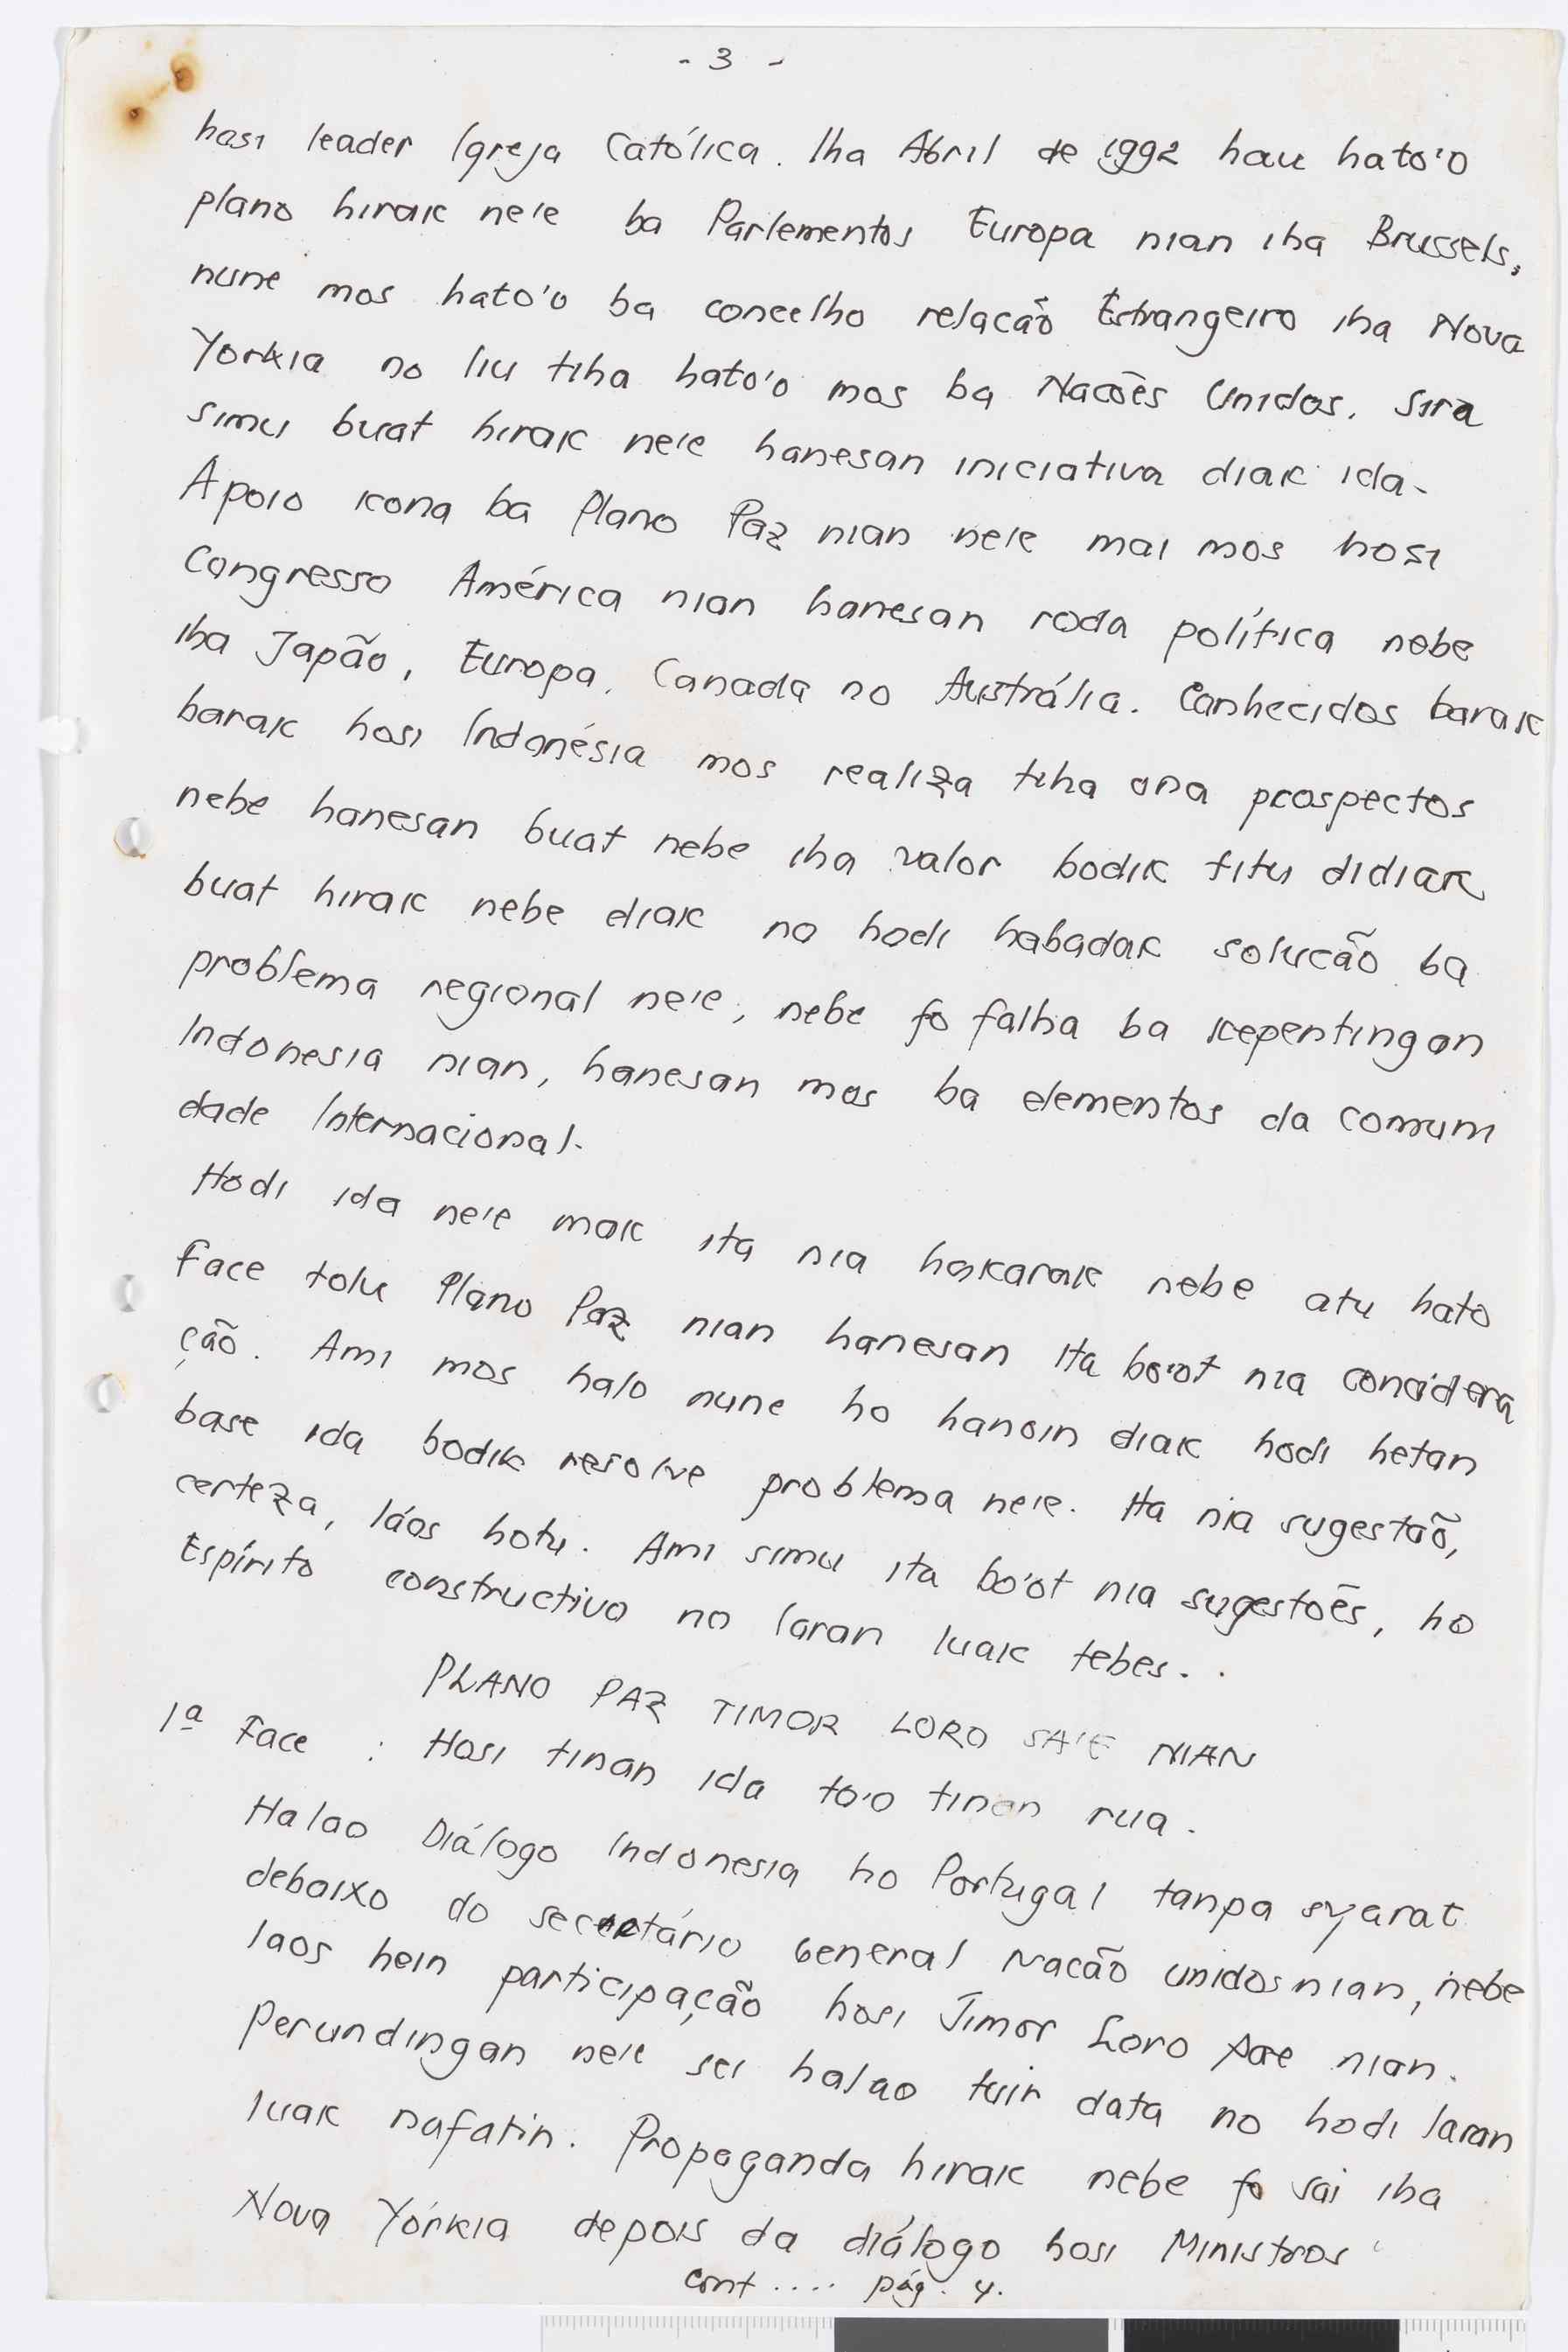 - 3 -
hosi leader Igreja Católica. Iha Abril de 1992 hau hato'o
plano hirak ne'e ba Parlementos Europa nian iha Brussels,
nune mos hato'o ba concelho relacão Estrangeiro iha Nova
Yorkia no liu tiha hato'o mos ba Nacões Unidos. Sira
simu buat hirak ne'e hanesan iniciativa diak ida-
Apoio kona ba Plano Paz nian ne'e mai mos hosi
Congresso América nian hanesan roda política nebe
iha Japão, Europa, Canada no Austrália. Conhecidos barak
barak hosi Indonésia mos realiza tiha ona prospectos
nebe hanesan buat nebe iha valor bodik titu didiak
buat hirak nebe diak no hodi habadak solucão ba
problema regional ne'e, nebe fo falha ba kepentingan
Indonesia nian, hanesan mos ba elementos da comum
dade Internacional.
Hodi ida ne'e mak ita nia hakarak nebe atu hato
face tolu Plano Paz nian hanesan Ita bo'ot nia concidera
ção. Ami mos halo nune ho hanoin diak hodi hetan
base ida bodik resolve problema ne'e. Ita nia sugestaõ,
certeza, láos hotu. Ami simu ita bo'ot nia sugestoẽs, ho
Espírito constructivo no laran luak tebes. .
PLANO PAZ TIMOR LORO SA'E NIAN
1ª Face : Hosi tinan ida to'o tinan rua.
Halao Diálogo Indonesia ho Portugal tanpa syarat
debaixo do secretário General Nacão unidos nian, nebe
laos hein participação hosi Timor Loro Sae nian.
Perundingan ne'e sei halao tuir data no hodi laran
luak nafatin. Propaganda hirak nebe fo sai iha
Nova Yórkia depois da diálogo hosi Ministros
cont .... pág. 4.